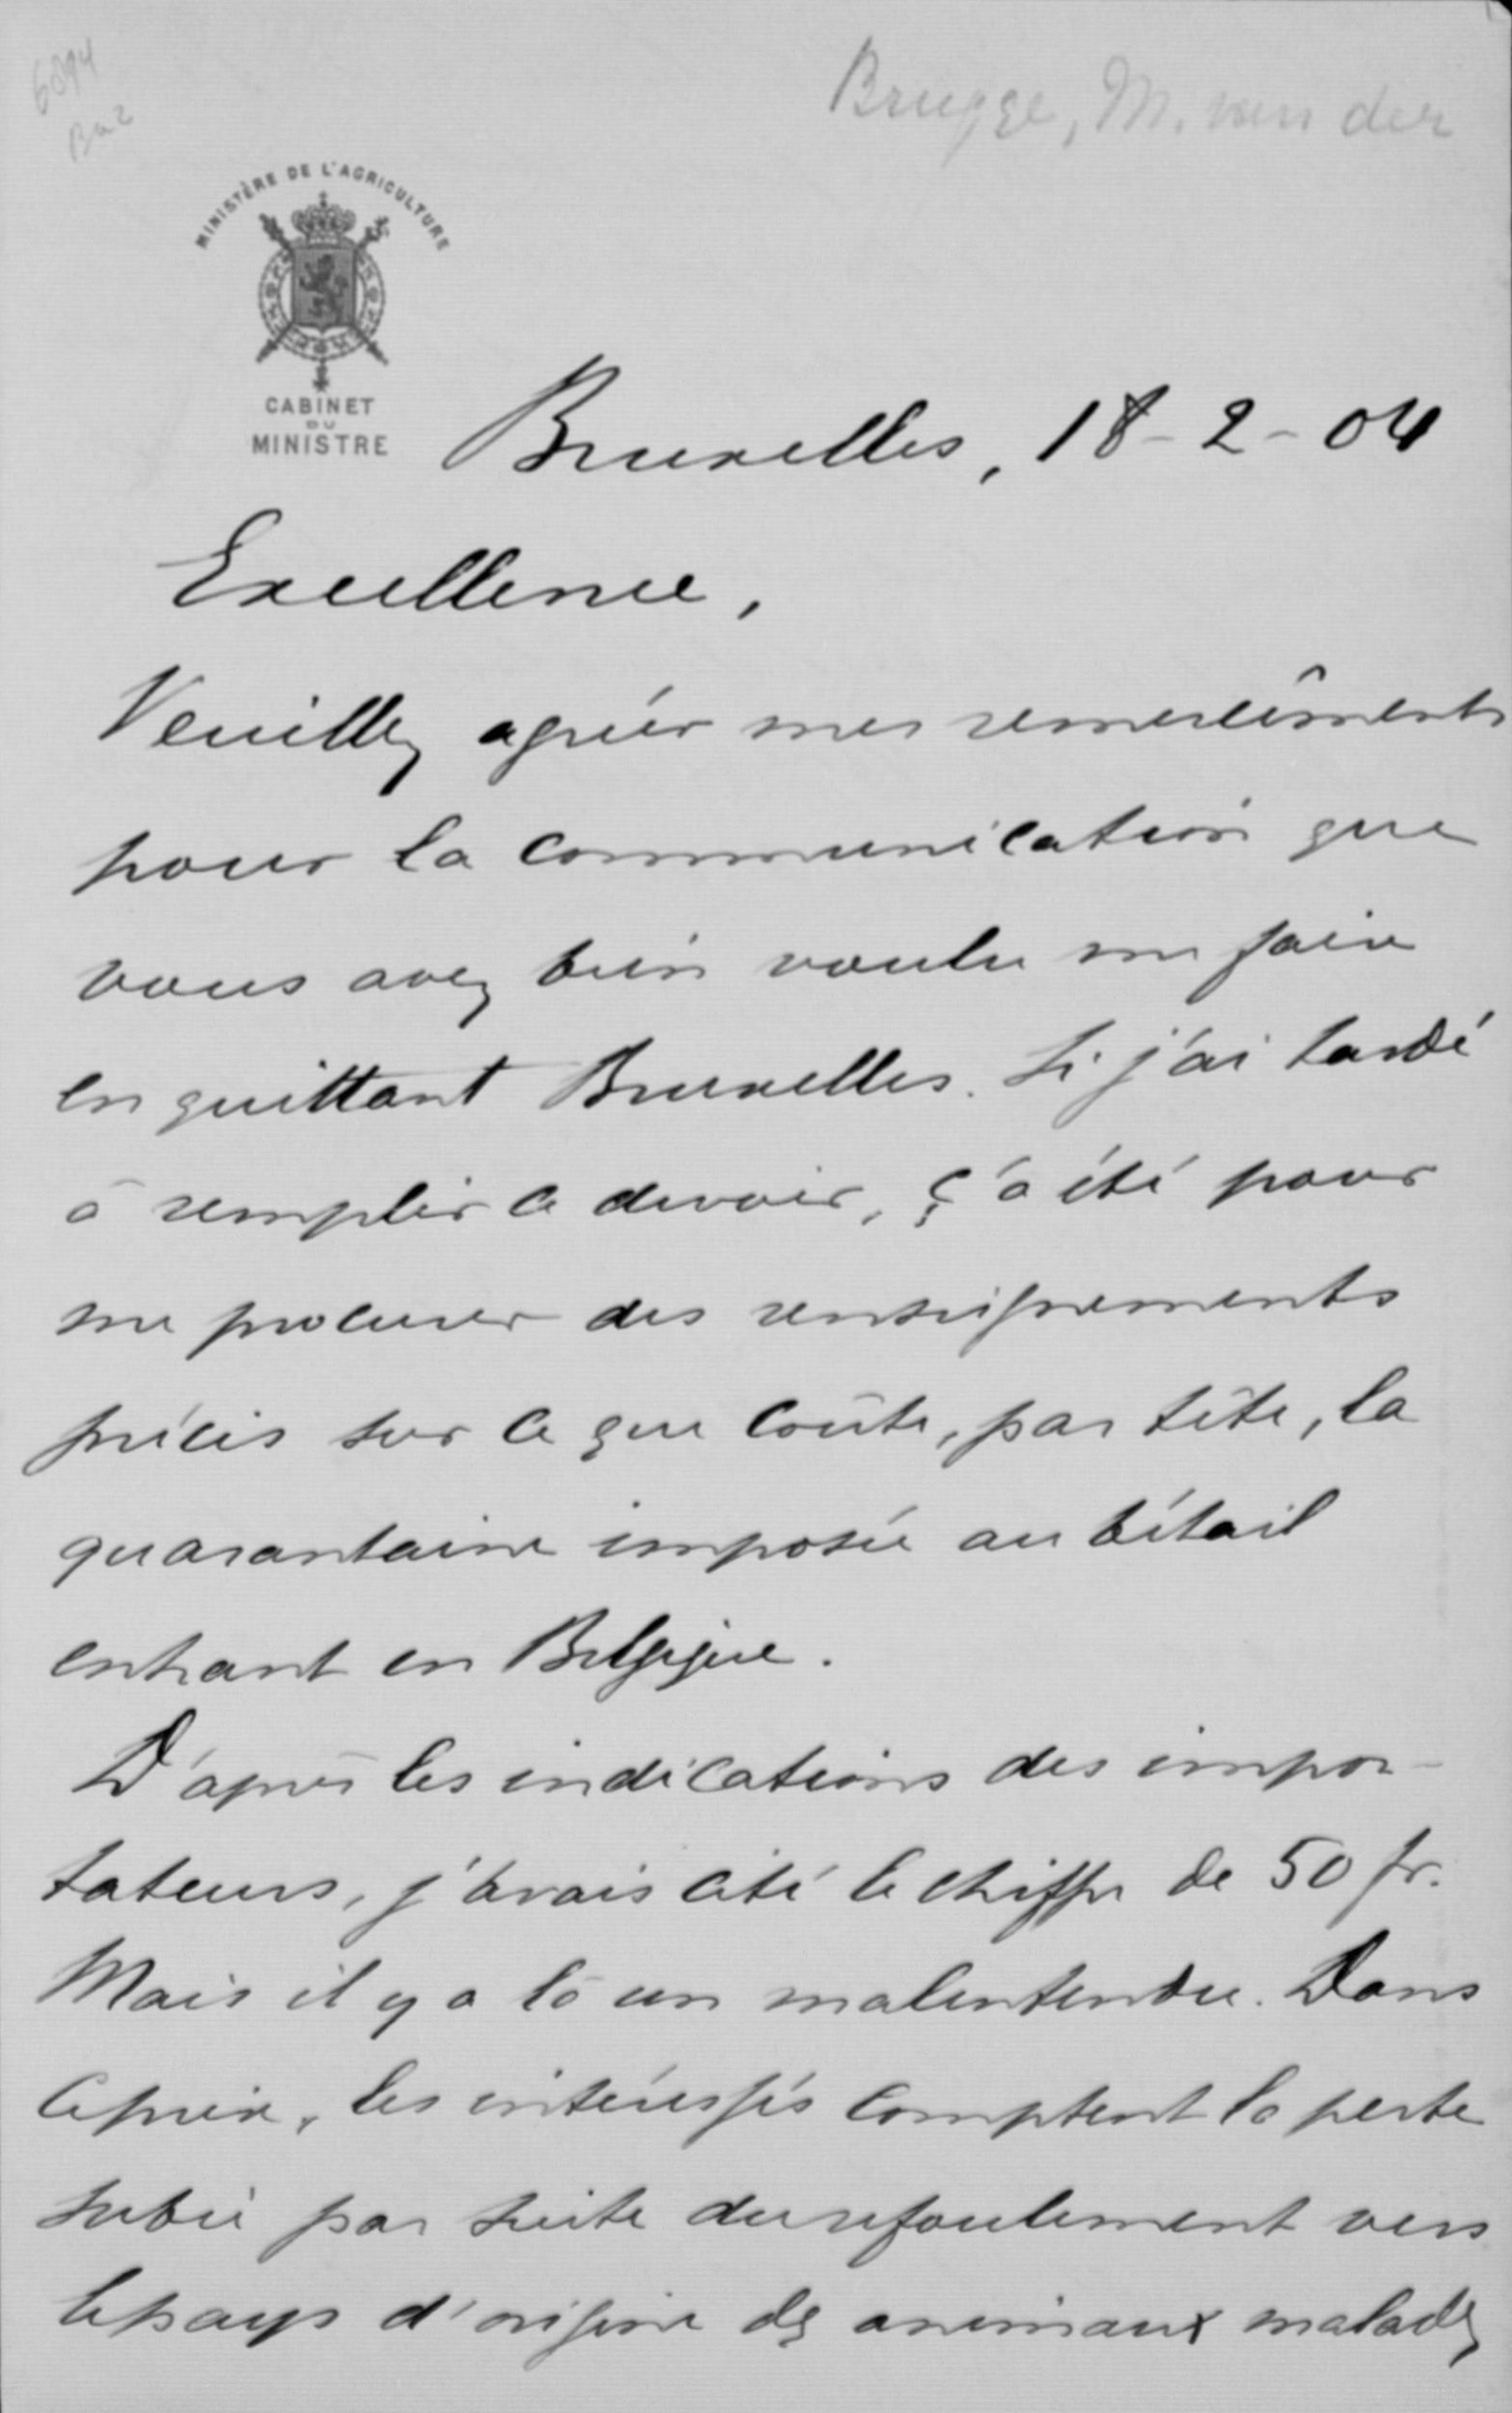 6894
Ba2
Brugge, M. van der
MINISTÈRE DE L'AGRICULTURE
CABINET
DU
MINISTRE
Bruxelles, 18-2-04
Excellence,
Veuillez agréer mes remercîments
pour la communication que
vous avez bien voulu me faire
en quittant Bruxelles. Si j'ai tardé
à remplir ce devoir, ç'a été pour
me procurer des renseignements
précis sur ce que coûte, par tête, la
quarantaine imposée au bétail
entrant en Belgique.
D'après les indications des impor-
tateurs, j'avais cité le chiffre de 50 fr.
Mais il y a là un malentendu. Dans
ce prix, les intéressés comptent la perte
subie par suite du refoulement vers
le pays d'origine des animaux malades